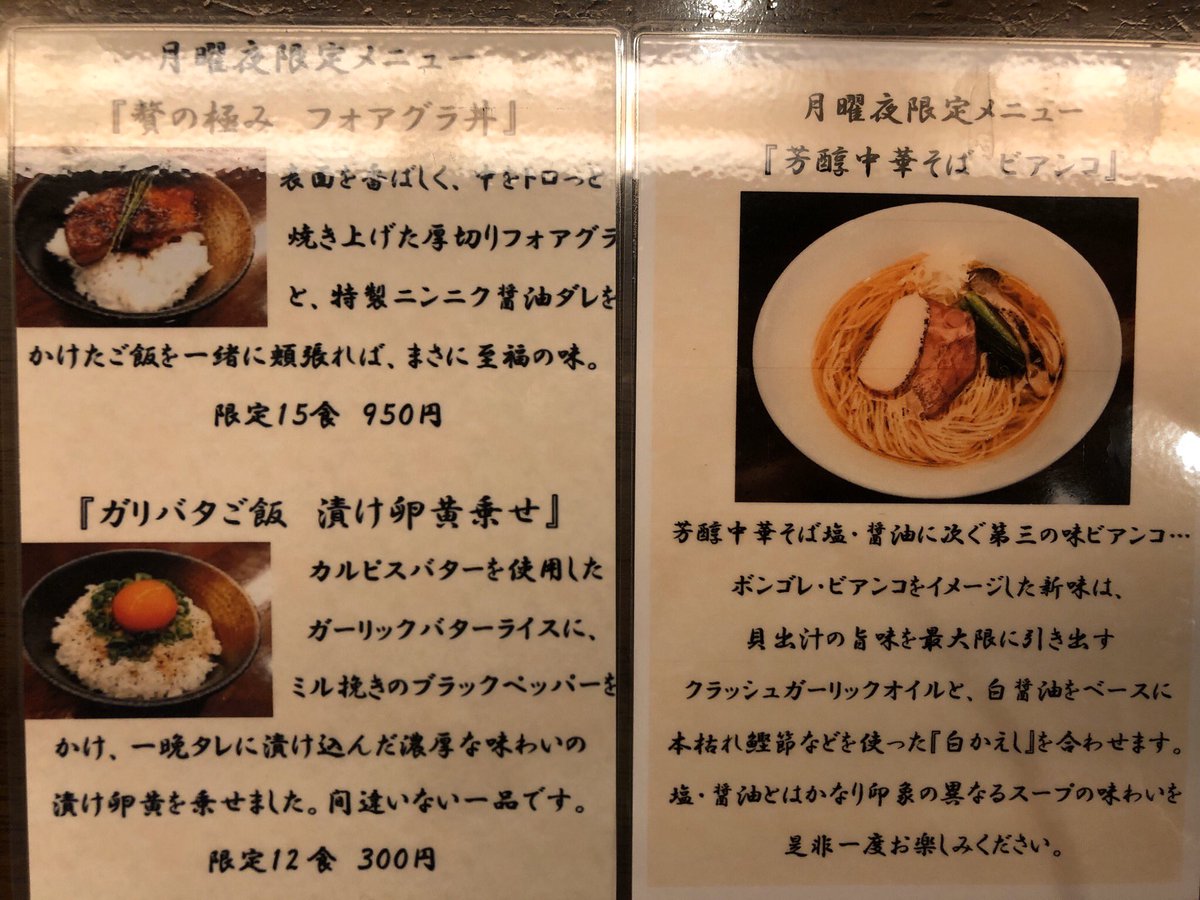 月曜夜限定メニュー
『贅の極み フォアグラ丼』
表面を香ばしく、中をトロっと
焼き上げた厚切りフォアグラ
と、特製ニンニク醤油ダレを
かけたご飯を一緒に頬張れば、まさに至福の味。
限定15食 950円
『ガリバタご飯 漬け卵黄乗せ』
カルピスバターを使用した
ガーリックバターライスに、
ミル挽きのブラックペッパーを
かけ、一晩タレに漬け込んだ濃厚な味わいの
漬け卵黄を乗せました。間違いない一品です。
限定12食 300円
月曜夜限定メニュー
『芳醇中華そば ビアンコ』
芳醇中華そば塩・醤油に次ぐ第三の味ビアンコ…
ボンゴレ・ビアンコをイメージした新味は、
貝出汁の旨味を最大限に引き出す
クラッシュガーリックオイルと、白醤油をベースに
本枯れ鰹節などを使った『白かえし』を合わせます。
塩・醤油とはかなり印象の異なるスープの味わいを
是非一度お楽しみください。